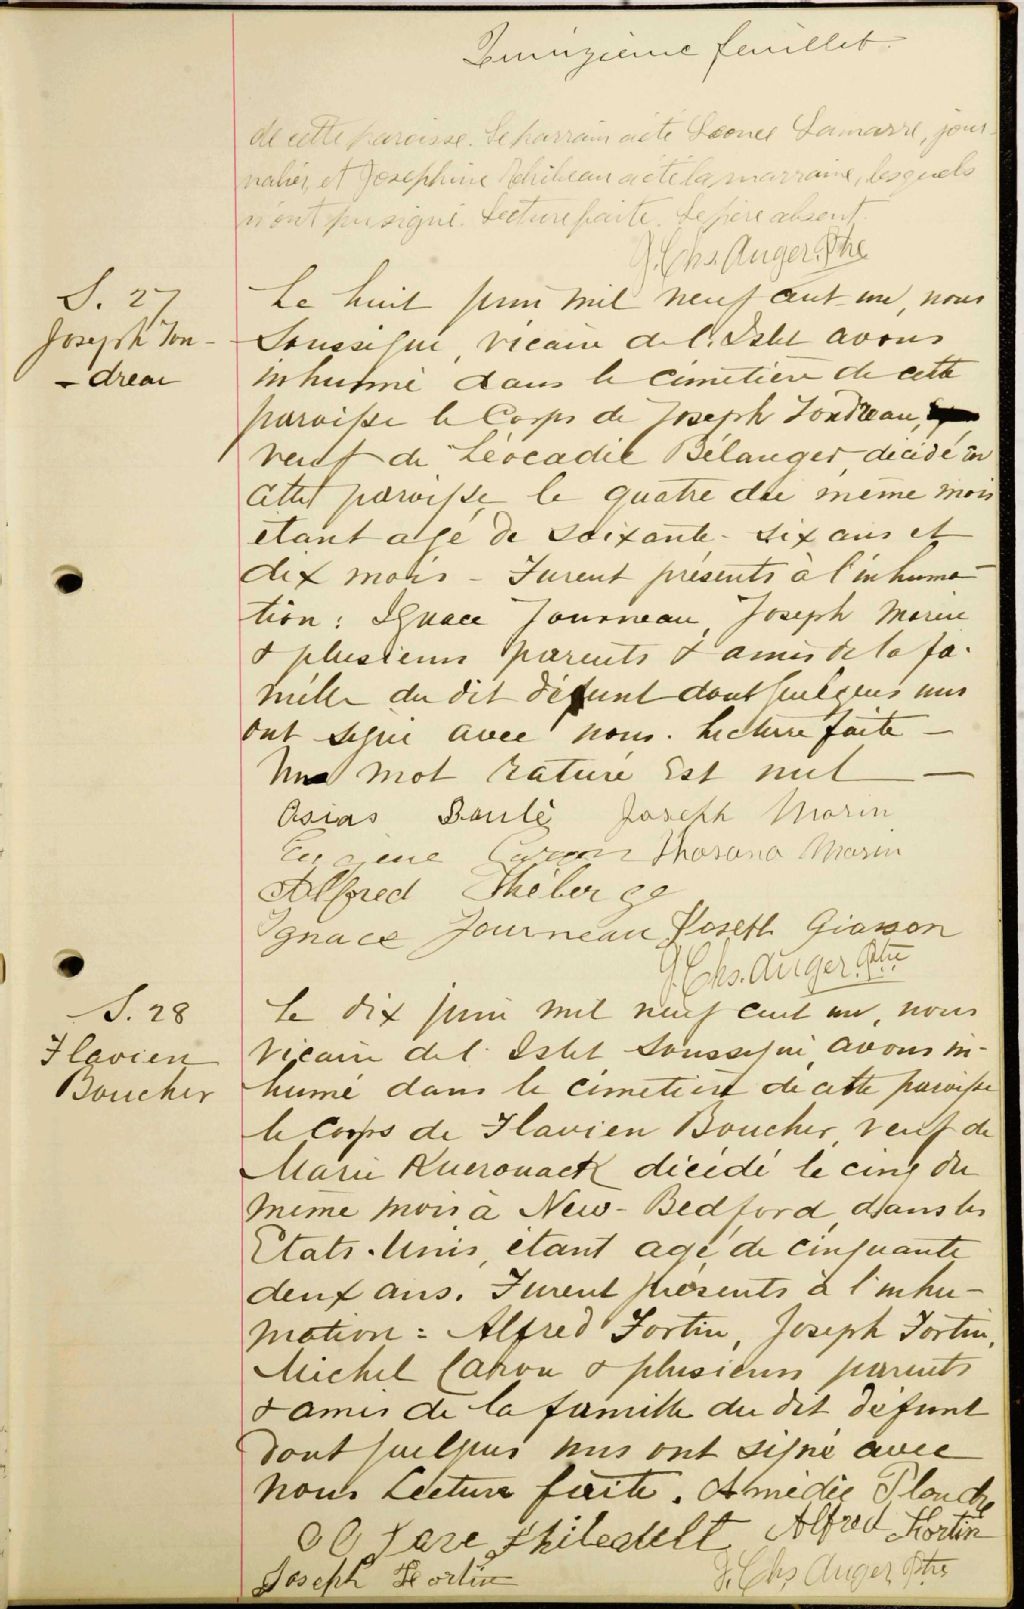 Quinzième feuillet.
de cette paroisse. Le parrain a été Léonce Lamarre, jour-
nalier, et Josephine Thibeau a été la marraine, lesquels
n'ont pu signé. Lecture faite. Le père absent.
J. Chs. Auger. Ptre
S. 27
Joseph Ton-
-dreau
Le huit juin mil neuf cent un, nous
Soussigné, vicaire de l'Islet avons
inhumé dans le cimetière de cette
paroisse le Corps de Joseph Tondreau,
veuf de Léocadie Bélanger, décédé en
cette paroisse le quatre du même mois
étant agé de soixante-six ans et
dix mois - Furent présents à l'inhuma-
tion : Ignace Journeau, Joseph Morin
& plusieurs parents & amis de la fa-
mille du dit défunt dont quelques uns
ont signé avec nous. Lecture faite -
Un mot raturé Est nul -
Osias Boulé Joseph Morin
Eugène Caron Morin
Alfred Théberge
Ignace Journeau Joseth Giasson
J. Chs. Auger. Ptre
S. 28
Flavien
Boucher
Le dix juin mil neuf cent un, nous
Vicaire de l'Islet soussigné, avons in-
humé dans le cimetière de cette paroisse
le Corps de Flavien Boucher, veuf de
Marie Kuerouack décédé le cinq du
même mois à New-Bedford, dans les
Etats-Unis, étant agé de cinquante
deux ans. Furent présents à l'inhu-
mation = Alfred Fortin, Joseph Fortin,
Michel Caron & plusieurs parents
& amis de la famille du dit défunt
dont quelques uns ont signé avec
nous Lecture faite. Amédée Plourde
Alfred Fortin
Joseph Fortin J. Chs. Auger, Ptre